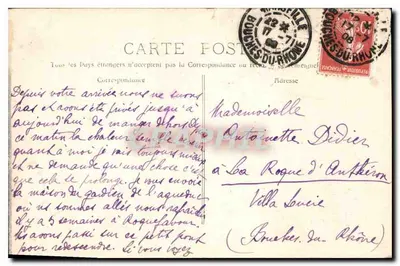 CARTE POSTALE
Tous les Pays étrangers n'acceptent pas la Correspondance au
Correspondance
Adresse
MARSEILLE
BOUCHES-DU-RHONE
Depuis votre arrivée nous ne
pas
privés jusqu'à
aujourd'hui de manger dehors
ce matin la chaleur
quant à moi je suis toujours
et ne demande qu'une chose c'est
que cela se prolonge. Je vous envoie
la maison du gardien de l'aqueduc
où nous sommes allés
il y a 3 semaines à Roquefavour
avons passé sur ce petit pont
pour redescendre. Si vous voyez
Mademoiselle
Antoinette Didier
à La Roque d'Anthéron
Villa Lucie
(Bouches-du-Rhône)